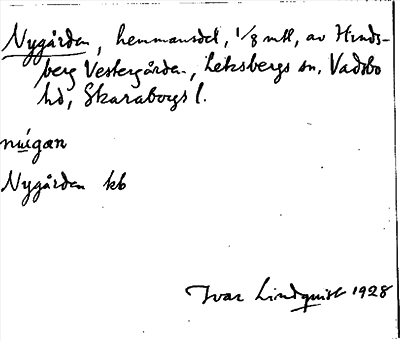 Nygården, hemmansdel, 1/8 mtl, av Hinds-
berg Vestergården, Leksbergs sn. Vadsbo
hd, Skaraborgs l.
Nygården kb
Ivar Lindquist 1928